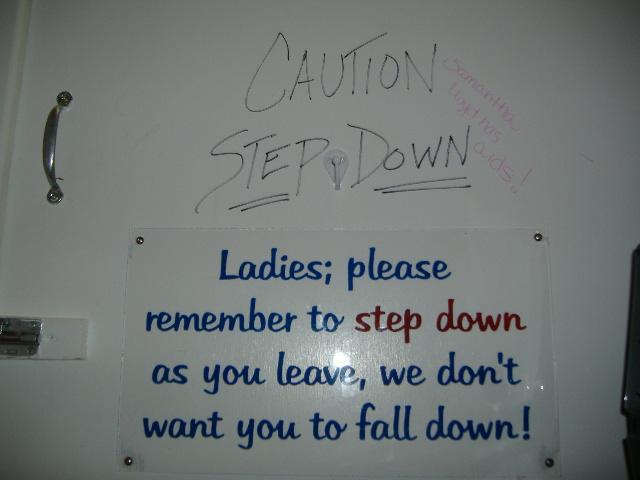 CAUTION
STEP DOWN
Samantha
has
aids!
Ladies; please
remember to step down
as you leave, we don't
want you to fall down!